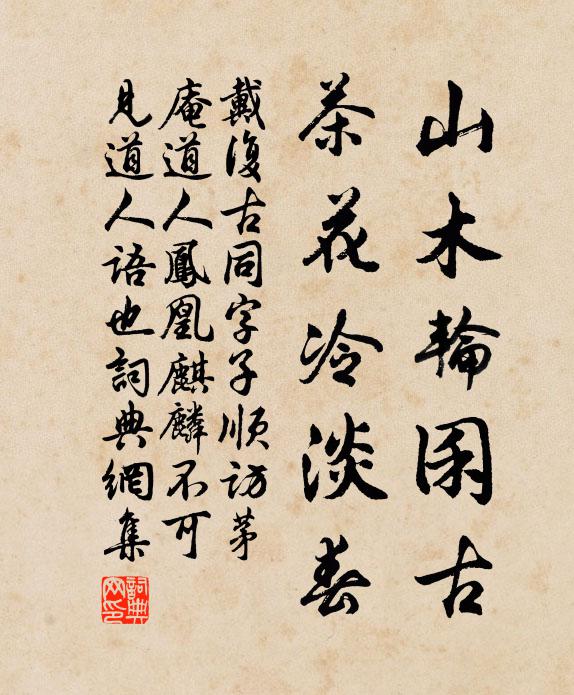 山木輪囷古
茶花冷淡春
戴復古同字子順訪茅
庵道人鳳凰麒麟不可
見道人語也詞典網集
詞典网印